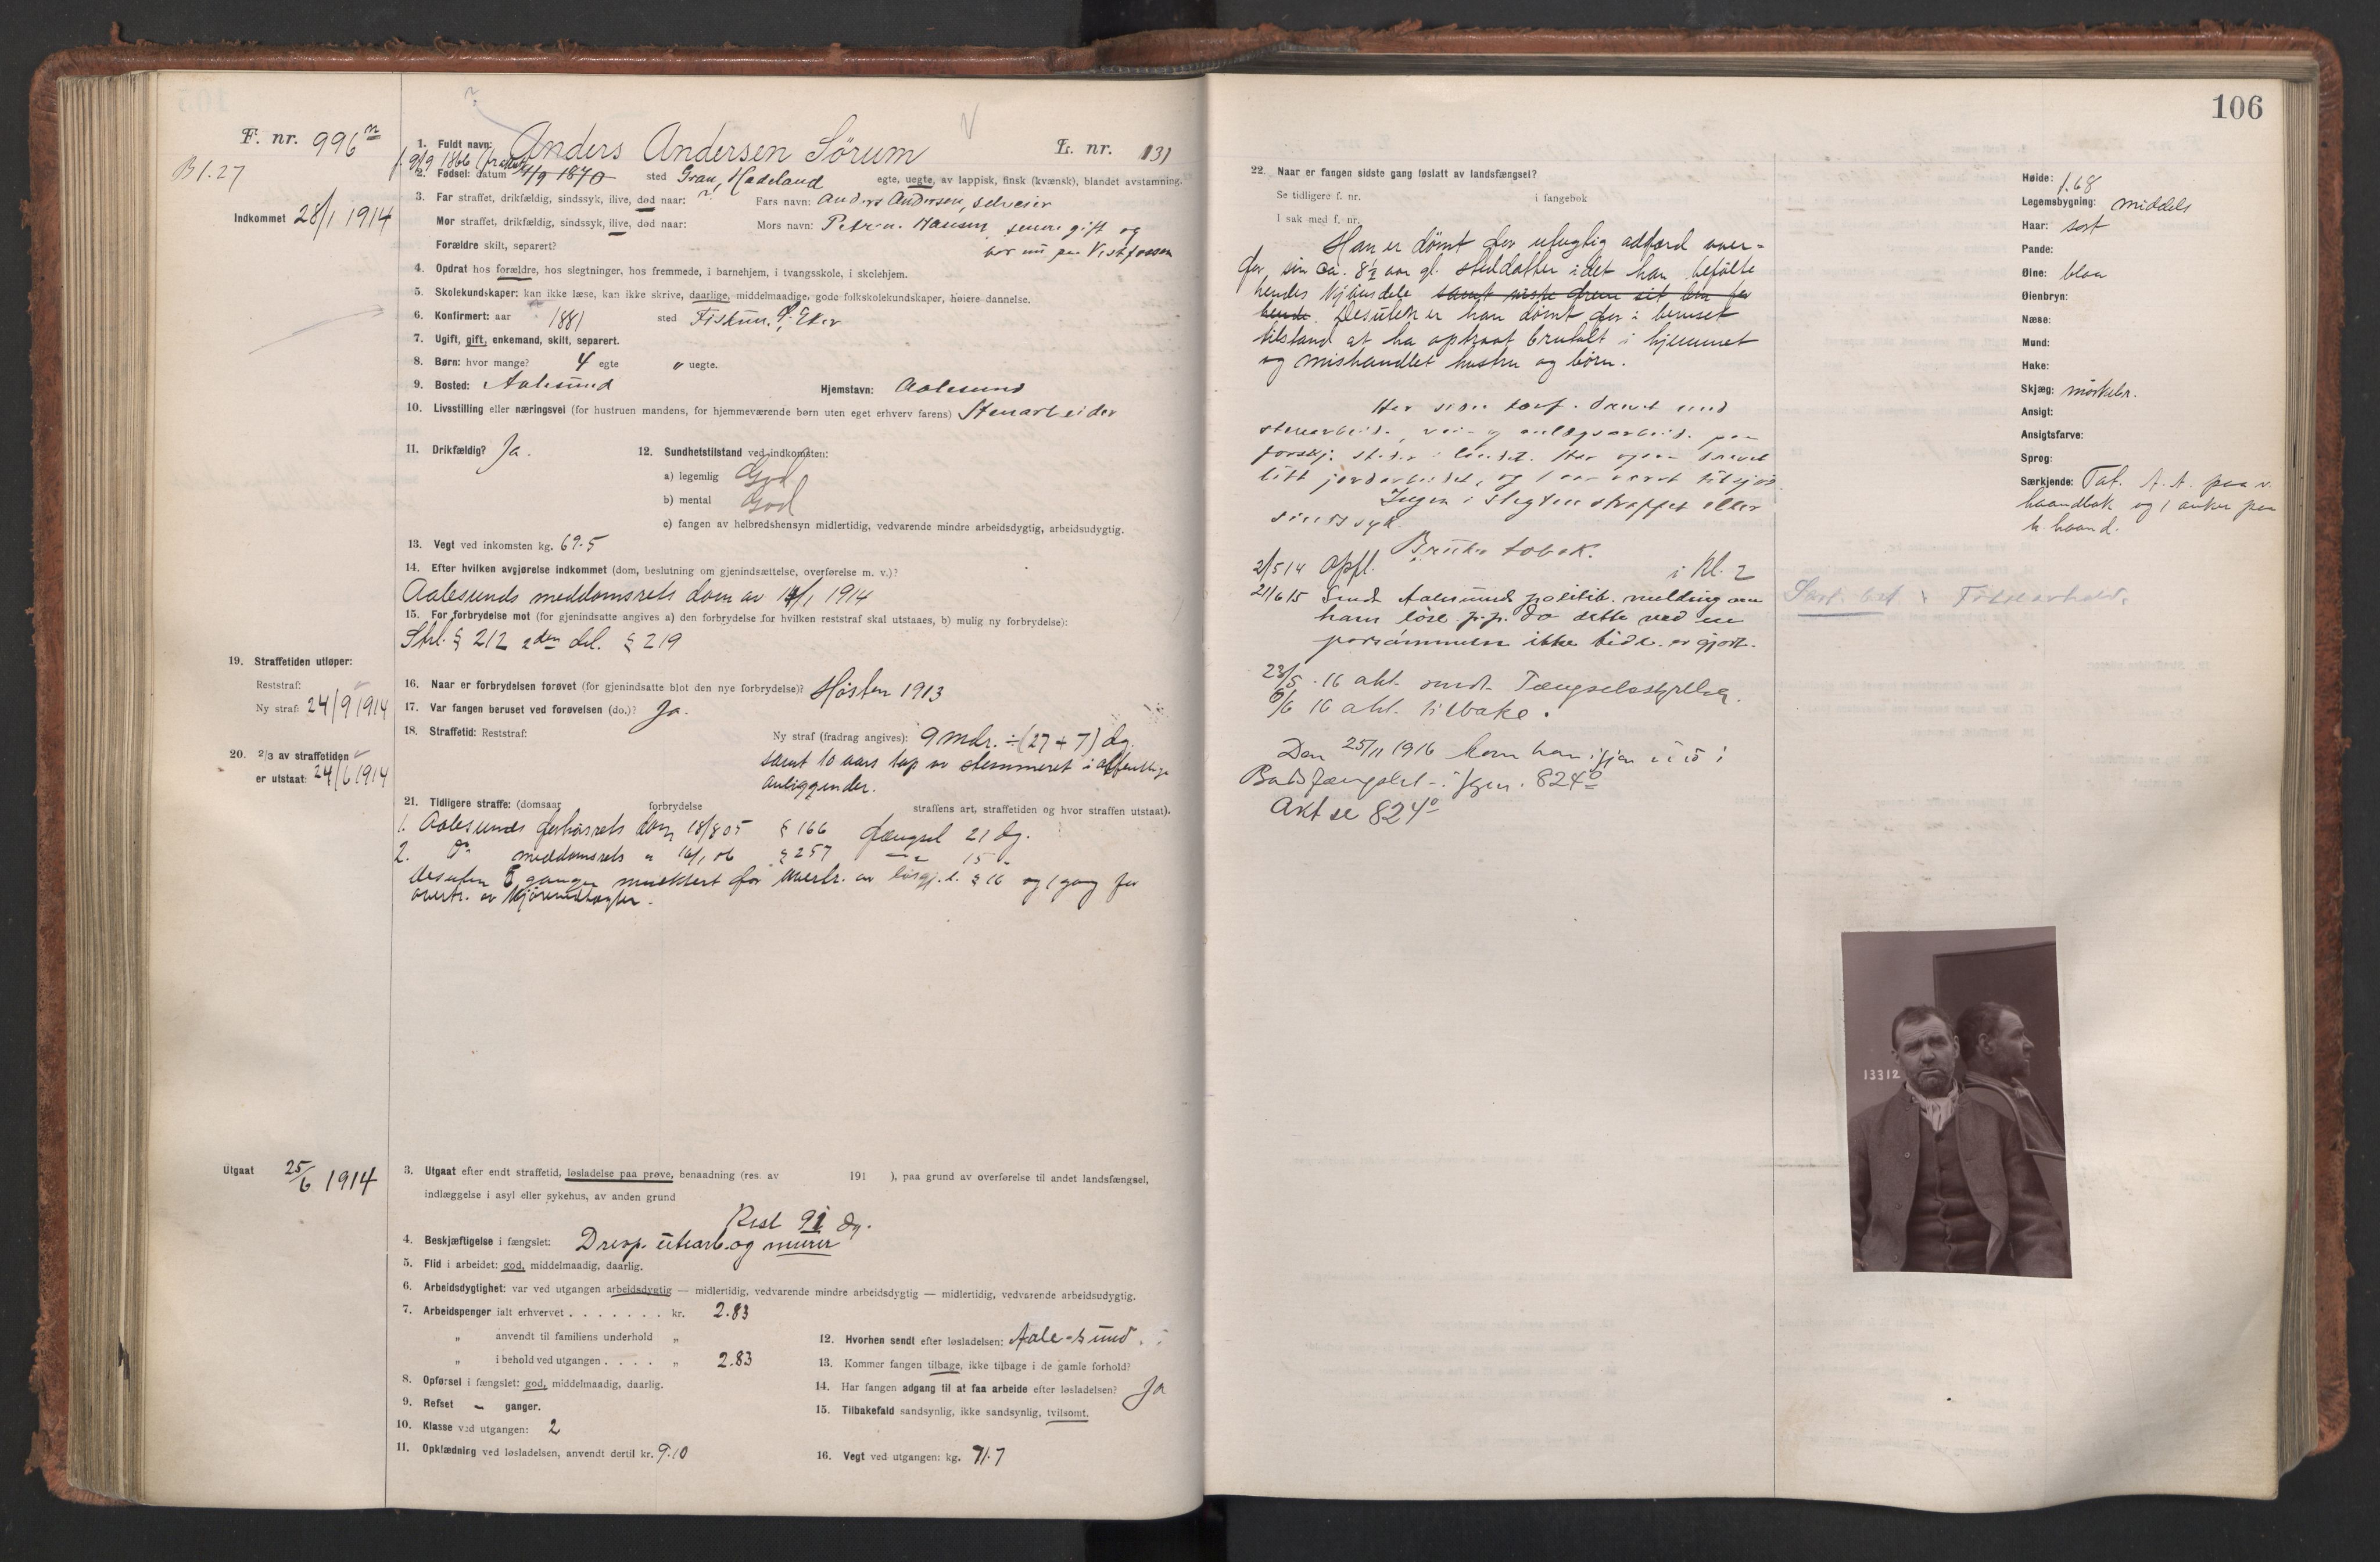 106
F. nr. 996 n
B 1.27
Indkommet 28/1 1914
1. Fuldt navn: Anders Andersen Sörum
E. nr. 131
f. 9/9 1866
2. Fødsel: datum 9/9 1870 sted Gran, Hadeland egte, uegte, av lappisk, finsk (kvænsk), blandet avstamning.
3. Far straffet, drikfældig, sindssyk, ilive, død naar: ? Fars navn: Anders Andersen, selveier
Mor straffet, drikfældig, sindssyk, ilive, død naar: Mors navn: Petra Hansen, senere gift og
Forældre skilt, separert? bor nu paa Vestfossen
4. Opdrat hos forældre, hos slegtninger, hos fremmede, i barnehjem, i tvangsskole, i skolehjem.
5. Skolekundskaper: kan ikke læse, kan ikke skrive, daarlige, middelmaadige, gode folkskolekundskaper, høiere dannelse.
6. Konfirmert: aar 1881 sted Fiskum, Eker
7. Ugift, gift, enkemand, skilt, separert.
8. Børn: hvor mange? 4 egte " uegte.
9. Bosted: Aalesund Hjemstavn: Aalesund
10. Livsstilling eller næringsvei (for hustruen mandens, for hjemmeværende børn uten eget erhverv farens) Stenarbeider
11. Drikfældig? Ja. 12. Sundhetstilstand ved indkomsten:
a) legemlig God
b) mental God
c) fangen av helbredshensyn midlertidig, vedvarende mindre arbeidsdygtig, arbeidsudygtig.
13. Vegt ved inkomsten kg. 69.5
14. Efter hvilken avgjørelse indkommet (dom, beslutning om gjenindsættelse, overførelse m. v.)?
Aalesunds meddomsrets dom av 14/1 1914
15. For forbrydelse mot (for gjenindsatte angives a) den forbrydelse for hvilken reststraf skal utstaaes, b) mulig ny forbrydelse):
Strl. § 212 2den del. § 219
19. Straffetiden utløper:
Reststraf:
Ny straf: 24/9 1914
16. Naar er forbrydelsen forøvet (for gjenindsatte blot den nye forbrydelse)? Høsten 1913
17. Var fangen beruset ved forøvelsen (do.)? Ja.
18. Straffetid: Reststraf: Ny straf (fradrag angives): 9 mdr. ÷ (27 + 7) dg.
samt 10 aars tap av stemmeret i offentlige
anliggender.
20. 2/3 av straffetiden
er utstaat: 24/6 1914
21. Tidligere straffe: (domsaar forbrydelse straffens art, straffetiden og hvor straffen utstaat).
1. Aalesunds forhørsrets dom 18/8 05 § 166 fængsel 21 dg.
2. Do meddomsrets " 16/1 06 § 257 — " 15 "
desuten 5 ganger mulktert for overtr. av løsgj. l. § 16 og 1 gang for
overtr. av
Utgaat 25/6 1914
3. Utgaat efter endt straffetid, løsladelse paa prøve, benaadning (res. av 191 ), paa grund av overførelse til andet landsfængsel,
indlæggelse i asyl eller sykehus, av anden grund
Rest 91 dg.
4. Beskjæftigelse i fængslet: Drevp. utearb. og murer
5. Flid i arbeidet: god, middelmaadig, daarlig.
6. Arbeidsdygtighet: var ved utgangen arbeidsdygtig — midlertidig, vedvarende mindre arbeidsdygtig — midlertidig, vedvarende arbeidsudygtig.
7. Arbeidspenger ialt erhvervet . . . . . . . kr. 2.83
" anvendt til familiens underhold "
" i behold ved utgangen . . . . " 2.83
8. Opførsel i fængslet: god, middelmaadig, daarlig.
9. Refset - ganger.
10. Klasse ved utgangen: 2
11. Opklædning ved løsladelsen, anvendt dertil kr. 9.10
12. Hvorhen sendt efter løsladelsen: Aalesund.
13. Kommer fangen tilbage, ikke tilbage i de gamle forhold?
14. Har fangen adgang til at faa arbeide efter løsladelsen? Ja
15. Tilbakefald sandsynlig, ikke sandsynlig, tvilsomt.
16. Vegt ved utgangen: kg. 71.7
22. Naar er fangen sidste gang løslatt av landsfængsel?
Se tidligere f. nr. i fangebok
I sak med f. nr.
Han er dömt for utugtig adfærd over-
for sin ca. 8½ aar gl. steddatter idet han befølte
hendes kjönsdele samt viste frem sit lem for
hende. Desuten er han dömt for i beruset
tilstand at ha optraat brutalt i hjemmet
og mishandlet hustru og börn.
Har siden konf. drevet med
stenarbeide, vei- og anlægsarbeide paa
forskj. steder i landet. Har ogsaa drevet
litt jordarbeide, og 1 aar været tilsjös.
Ingen i slegten straffet eller
sindssyk.
Bruker tobak.
2/5 14 Opfl. i Kl. 2
21/6 15 Sendt Aalesund politik. melding om
ham løsl. p. p. da dette ved en
forsömmelse ikke tidl. er gjort.
23/5 . 16 akt. sendt Fængselsstyrelsen.
6/6 16 akt. tilbake.
Den 25/11 1916 kom han igjen ind i
Bodsfængslet - i fgnr. 824 o
Akt se 824 o
Høide: 1.68
Legemsbygning: middels
Haar: sort
Pande:
Øine: blaa
Øienbryn:
Næse:
Mund:
Hake:
Skjæg: mörkebr.
Ansigt:
Ansigtsfarve:
Sprog:
Særkjende: Tat. A. A. paa v.
haandbak og 1 anker paa
h. haand.
13312